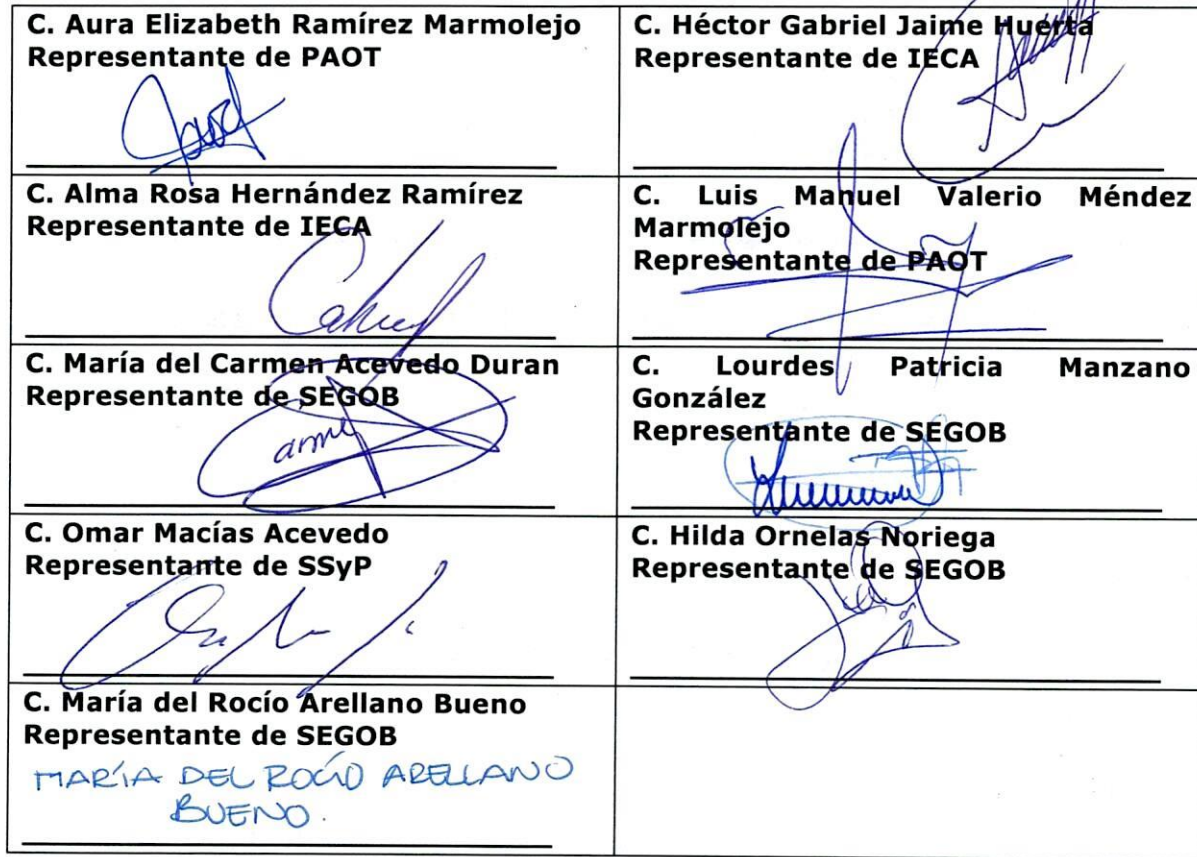 C. Aura Elizabeth Ramírez Marmolejo
Representante de PAOT
C. Héctor Gabriel Jaime Huerta
Representante de IECA
C. Alma Rosa Hernández Ramírez
Representante de IECA
C. Luis Manuel Valerio Méndez
Marmolejo
Representante de PAOT
C. María del Carmen Acevedo Duran
Representante de SEGOB
C. Lourdes Patricia Manzano
González
Representante de SEGOB
C. Omar Macías Acevedo
Representante de SSyP
C. Hilda Ornelas Noriega
Representante de SEGOB
C. María del Rocío Arellano Bueno
Representante de SEGOB
MARÍA DEL ROCÍO ARELLANO
BUENO.